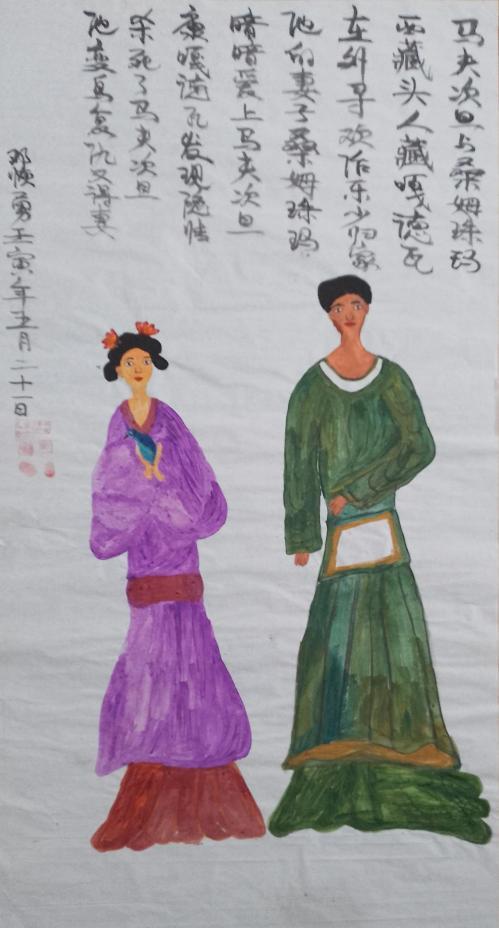 马夫次旦与桑姆珠玛
西藏头人藏嘎德瓦
在外寻欢作乐少归家
他的妻子桑姆珠玛
暗暗爱上马夫次旦
藏嘎德瓦发现隐情
杀死了马夫次旦
他变鸟复仇又得妻
邓顺勇壬寅年五月二十一日